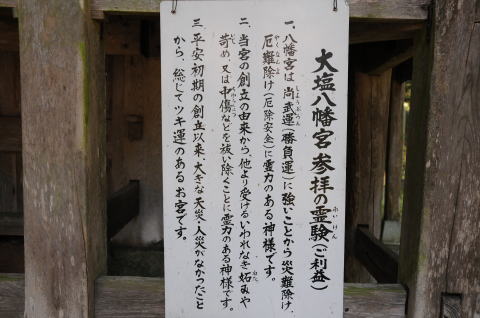 大塩八幡宮参拝の霊験(ご利益)
一、八幡宮は尚武運(勝負運)に強いことから災難除け、
厄難除け(厄除安全)に霊力のある神様です。
二、当宮の創立の由来から、他より受けるいわれなき妬みや
苛め、又は中傷などを祓い除くことに霊力のある神様です。
三、平安初期の創立以来、大きな天災・人災がなかったこと
から、総じてツキ運のあるお宮です。